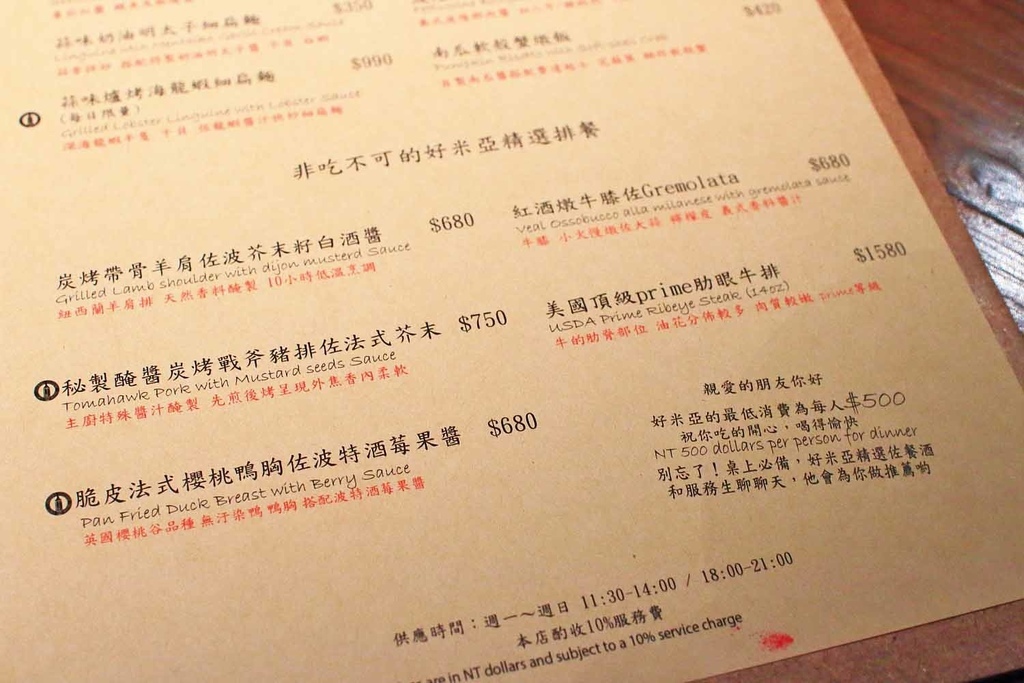 $350
蒜味奶油明太子細扁麵
$990
蒜味爐烤海龍蝦細扁麵
(每日限量)
Grilled Lobster Linguine with Lobster Sauce
$420
南瓜軟殼蟹燉飯
Pumpkin Risotto with Soft Shell Crab
非吃不可的好米亞精選排餐
炭烤帶骨羊肩佐波芥末籽白酒醬 $680
Grilled Lamb shoulder with dijon musterd Sauce
紐西蘭羊肩排 天然香料醃製 10小時低溫烹調
秘製醃醬炭烤戰斧豬排佐法式芥末 $750
Tomahawk Pork with Mustard seeds Sauce
主廚特殊醬汁醃製 先煎後烤呈現外焦香內柔軟
脆皮法式櫻桃鴨胸佐波特酒莓果醬 $680
Pan Fried Duck Breast with Berry Sauce
英國櫻桃谷品種 無汙染鴨 鴨胸 搭配波特酒莓果醬
紅酒燉牛膝佐Gremolata $680
Veal Ossobucco alla milanese with gremolata sauce
牛膝 小火慢燉佐大蒜 檸檬皮 義式香料醬汁
美國頂級prime肋眼牛排 $1580
USDA Prime Ribeye Steak (14oz)
牛的肋脊部位 油花分佈較多 肉質較嫩 prime等級
親愛的朋友你好
好米亞的最低消費為每人$500
祝你吃的開心，喝得愉快
NT 500 dollars per person for dinner
別忘了！桌上必備，好米亞精選佐餐酒
和服務生聊聊天，他會為你做推薦喲
供應時間：週一～週日 11:30-14:00 / 18:00-21:00
本店酌收10%服務費
are in NT dollars and subject to a 10% service charge